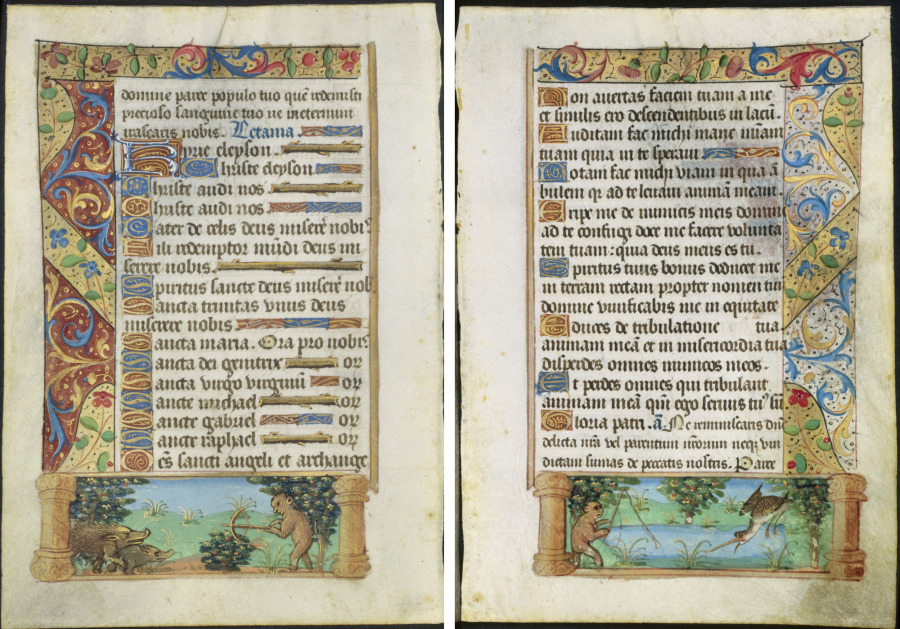 domine parce populo tuo quē redemisti
precioso sanguine tuo ne ineternum
irascaris nobis. Letania
Kyrie eleyson.
Christe eleyson
Christe audi nos
Christe audi nos
Pater de celis deus miserē nobiˢ
Fili redemptor mūdi deus mi
serere nobis.
Spiritus sancte deus miserē nob
Sancta trinitas vnus deus
miserere nobis
Sancta maria. Ora pro nobiˢ
Sancta dei genitrix or
Sancta virgo virginū or
Sancte michael or
Sancte gabriel or
Sancte raphael or
Oēs sancti angeli et archange
Non auertas faciem tuam a me
et similis ero descendentibus in lacū.
Auditam fac michi mane miām
tuam quia in te speraui
Notam fac michi viam in qua ā
bulem qr ad te leuaui animā meam.
Eripe me de inimicis meis domine
ad te confugi doce me facere volunta
tem tuam: quia deus meus es tu.
Spiritus tuus bonus deducet me
in terram rectam propter nomen tuū
domine viuificabis me in equitate
Educes de tribulatione tua
animam meā et in misericordia tua
disperdes omnes inimicos meos.
Et perdes omnes qui tribulant
animam meā qm̄ ego seruus tuꝰ sū
Gloria patri. a. Ne reminiscaris dn̄e
delicta nr̄a vel parentum nr̄orum neqꝫ vin
dictam sumas de peccatis nostris. Parce